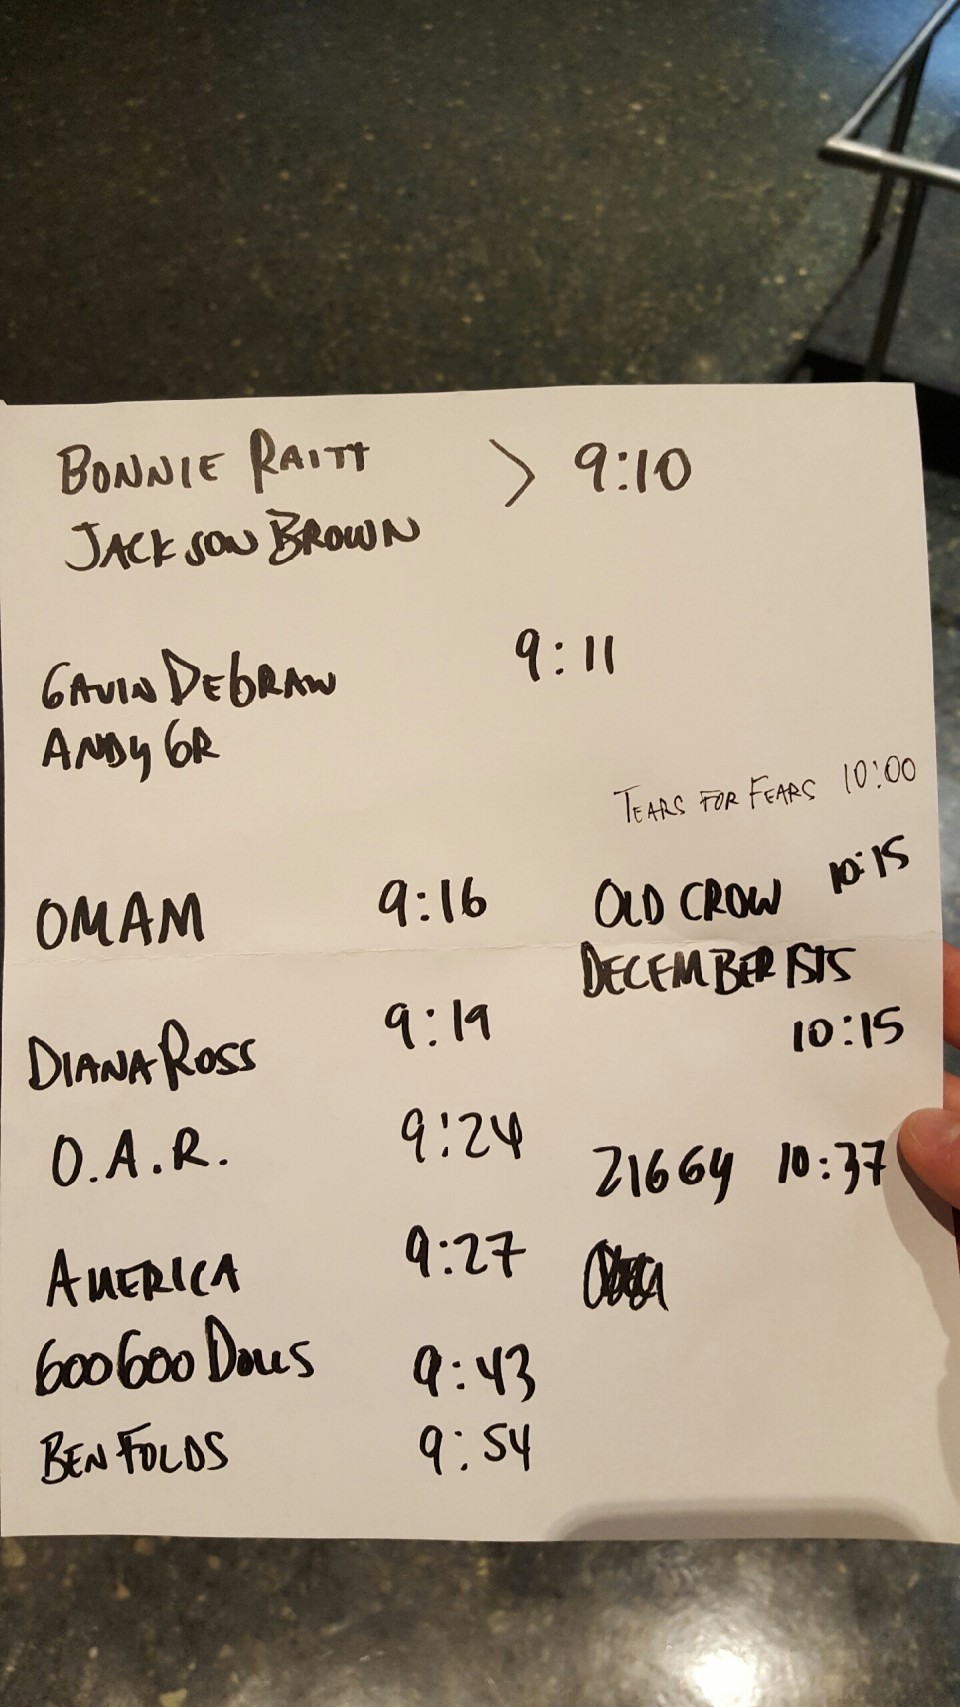 BONNIE RAITT > 9:10
JACKSON BROWN
GAVIN DEGRAW 9:11
ANDY GR
TEARS FOR FEARS 10:00
OMAM 9:16
OLD CROW 10:15
DECEMBERISTS
10:15
DIANA ROSS 9:19
O.A.R. 9:24
ZIGGY 10:37
AMERICA 9:27
GOOGOO DOLLS 9:43
BEN FOLDS 9:54